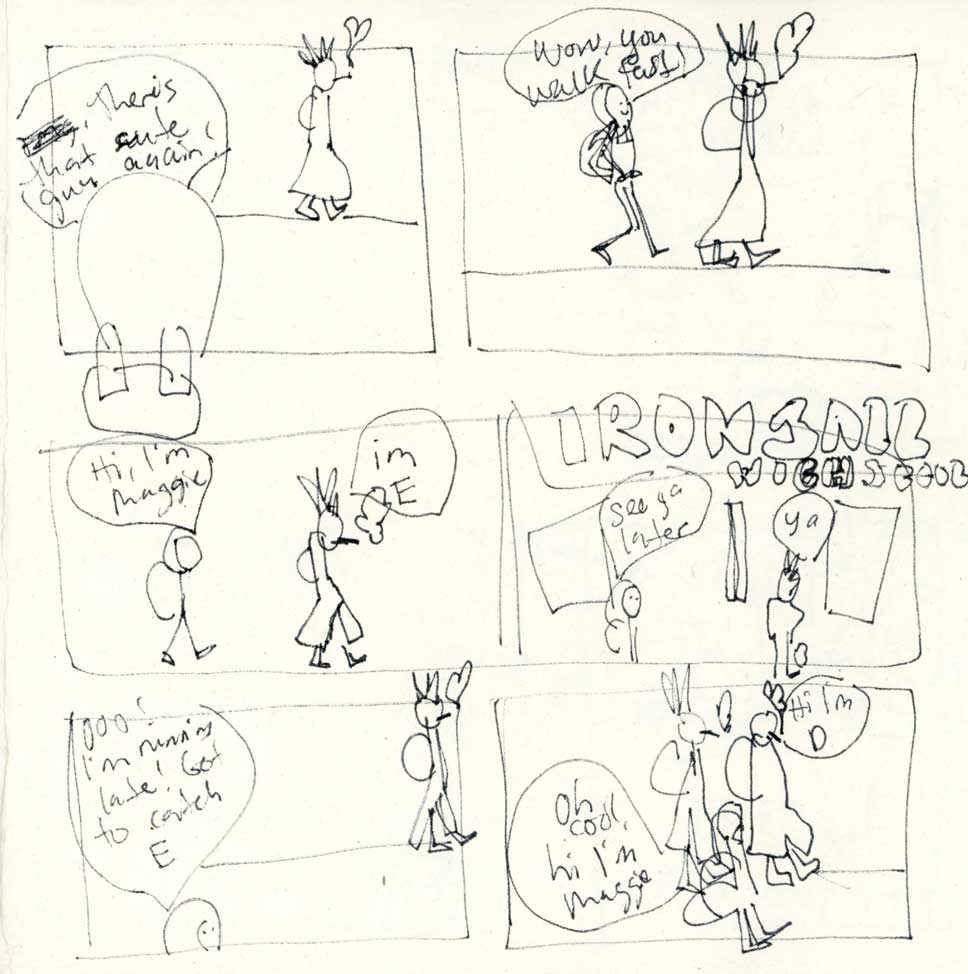 there's
that cute
guy again!
Wow, you
walk fast!
Hi, I'm
Maggie
im
E
IRONGALL
HIGH SCOOL
see ya
later
ya
OOO!
I'm running
late! Got
to catch
E
Hi I'm
D
Oh
cool,
hi I'm
Maggie